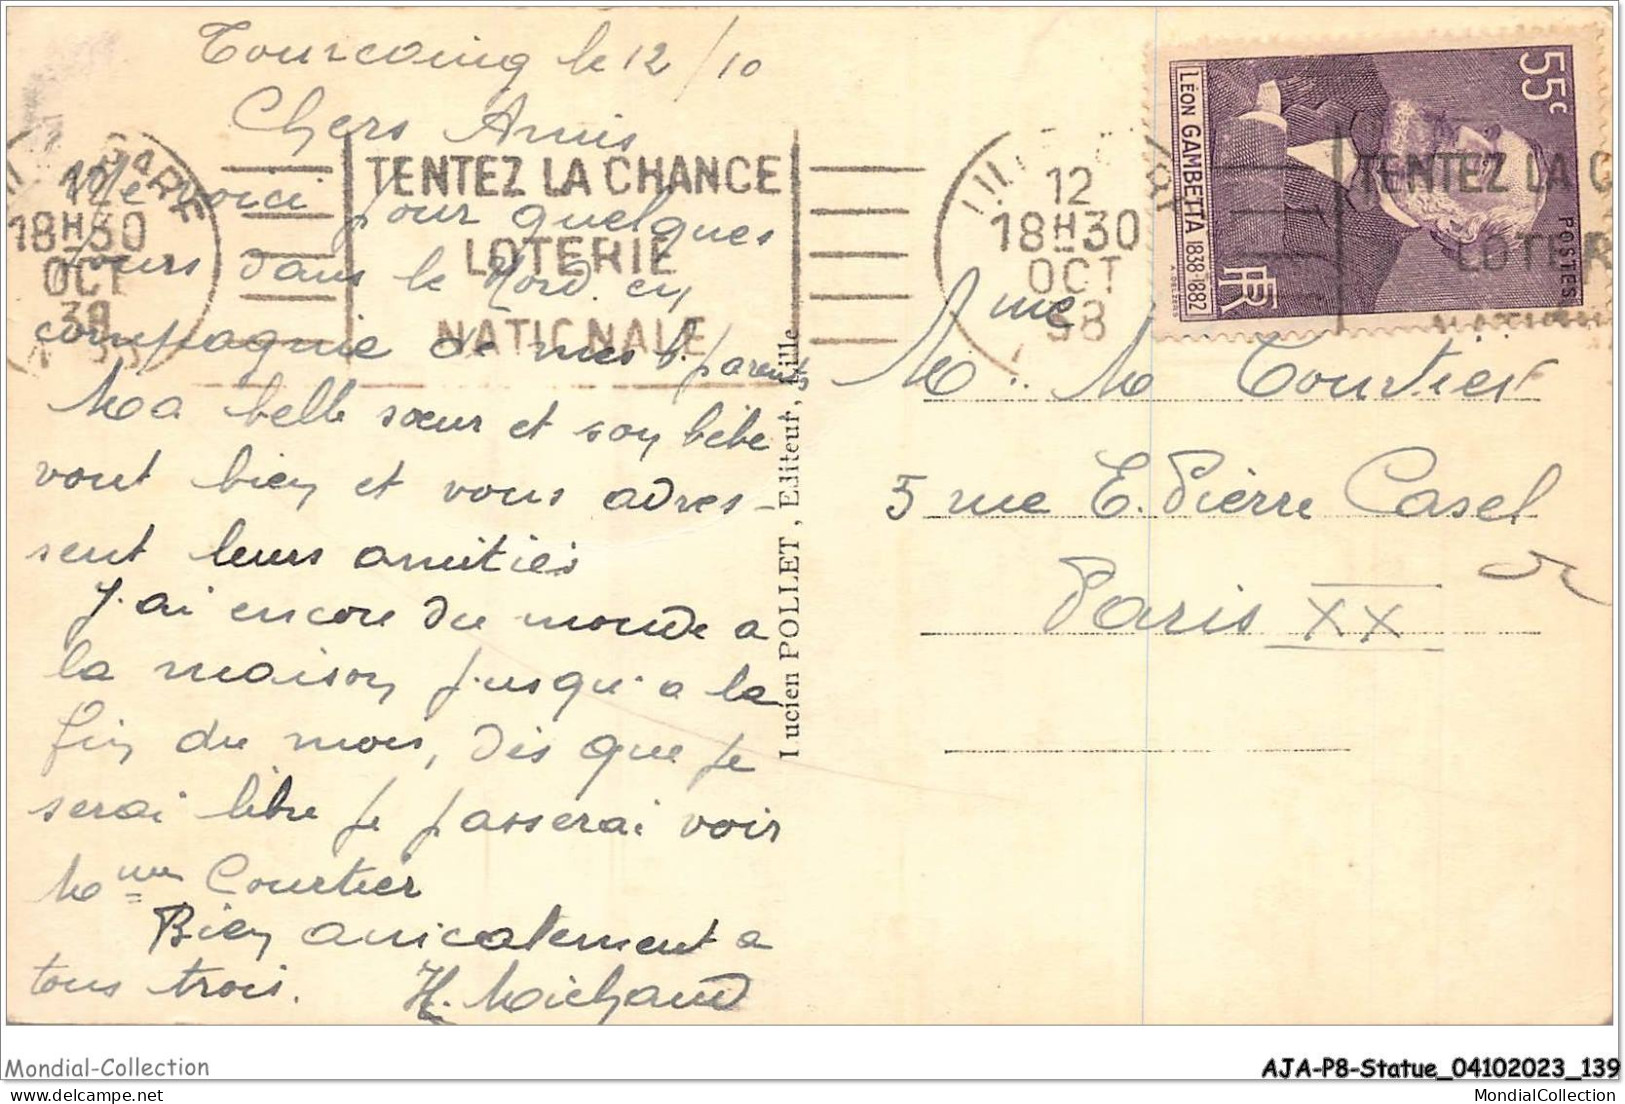 Tourcoing le 12/10
Chers Amis
Me voici pour quelques
jours dans le Nord en
compagnie de mes b. parents
Ma belle sœur et son bébé
vont bien et vous adres-
sent leurs amitiés
J'ai encore du monde a
la maison jusqu'a la
fin du mois, dès que je
serai libre je passerai voir
Mme Courtier
Bien amicalement a
tous trois. H. Michaud
GARE
12
18H30
OCT
38
TENTEZ LA CHANCE
LOTERIE
NATIONALE
Lucien POLLET, Editeur, Lille
12
18H30
OCT
38
TENTEZ LA C
LOTER
55c
LÉON GAMBETTA 1838-1882
POSTES
RF
Mme
M. M Courtier
5 rue E. Pierre Casel
Paris XX
Mondial-Collection
AJA-P8-Statue_04102023_139
MondialCollection